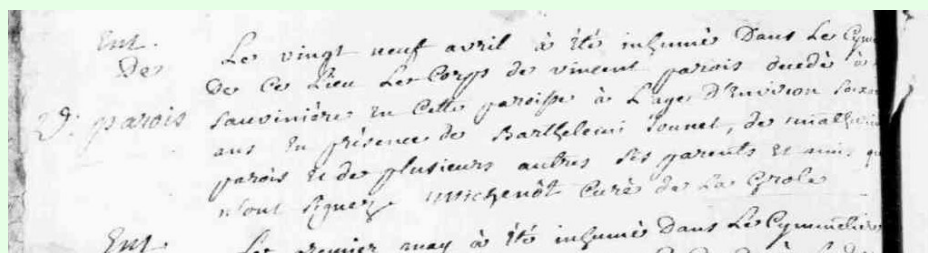 Ent.
De
V. parois
Le vingt neuf avril à été inhumé Dans Le Cyme
De Ce Lieu Le Corps de vincent parois decedé à
sauvinière En Cette paroisse à L'age D'Environ soixan
ans En présence de Barthelemi Jounet, de mathurin
parois et de plusieurs autres ses parents et amis qu
n'ont signez Michenôt Curé de La Grole
Ent.
Le premier may à été inhumé Dans Le Cymmetière